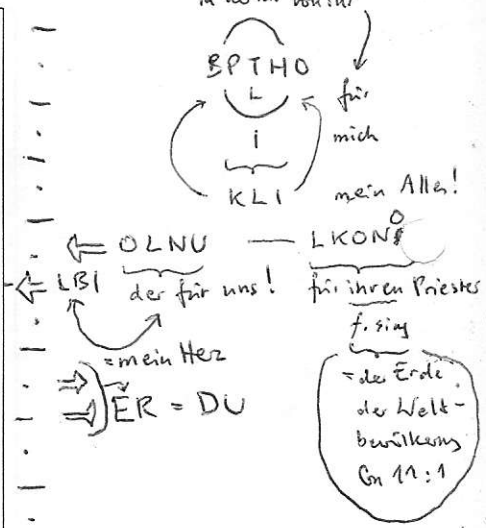 BPTHO
L für
i mich
KLI mein Alles!
⇐ OLNU — LKON
⇐ LBI der für uns! für ihren Priester
f. sing
= mein Herz
= der Erde
ER = DU der Welt-
bevölkerung
Gn 11:1